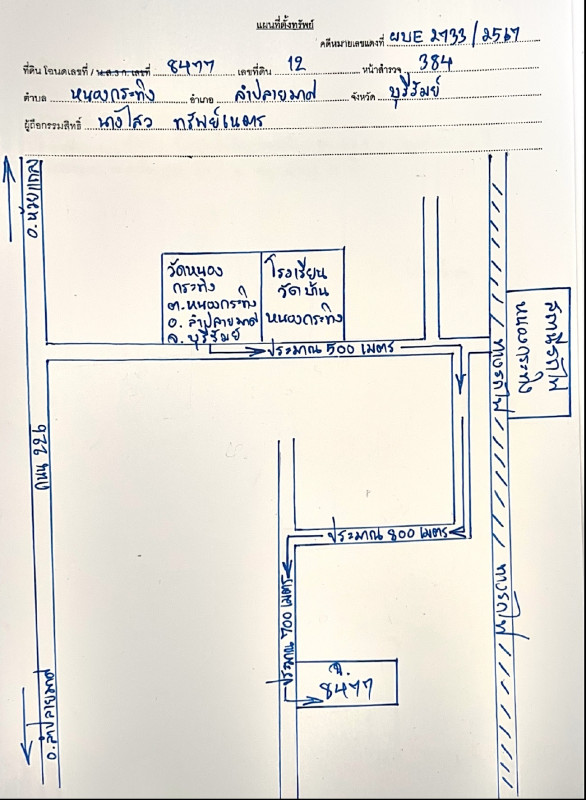 แผนที่ตั้งทรัพย์
คดีหมายเลขแดงที่ ผบE 2733/2567
ที่ดิน โฉนดเลขที่ / น.ส.3 ก. เลขที่ 8477 เลขที่ดิน 12 หน้าสำรวจ 384
ตำบล หนองกระทิง อำเภอ ลำปลายมาศ จังหวัด บุรีรัมย์
ผู้ถือกรรมสิทธิ์ นางไสว ทรัพย์เนตร
อ.ห้วยแถลง
วัดหนอง
กระทิง
ต.หนองกระทิง
อ.ลำปลายมาศ
จ.บุรีรัมย์
โรงเรียน
วัดบ้าน
หนองกระทิง
ประมาณ 500 เมตร
ทางรถไฟ
สถานีรถไฟ
หนองกระทิง
ถนน 226
ประมาณ 800 เมตร
ทางรถไฟ
ประมาณ 700 เมตร
ฉ.
8477
อ.ลำปลายมาศ